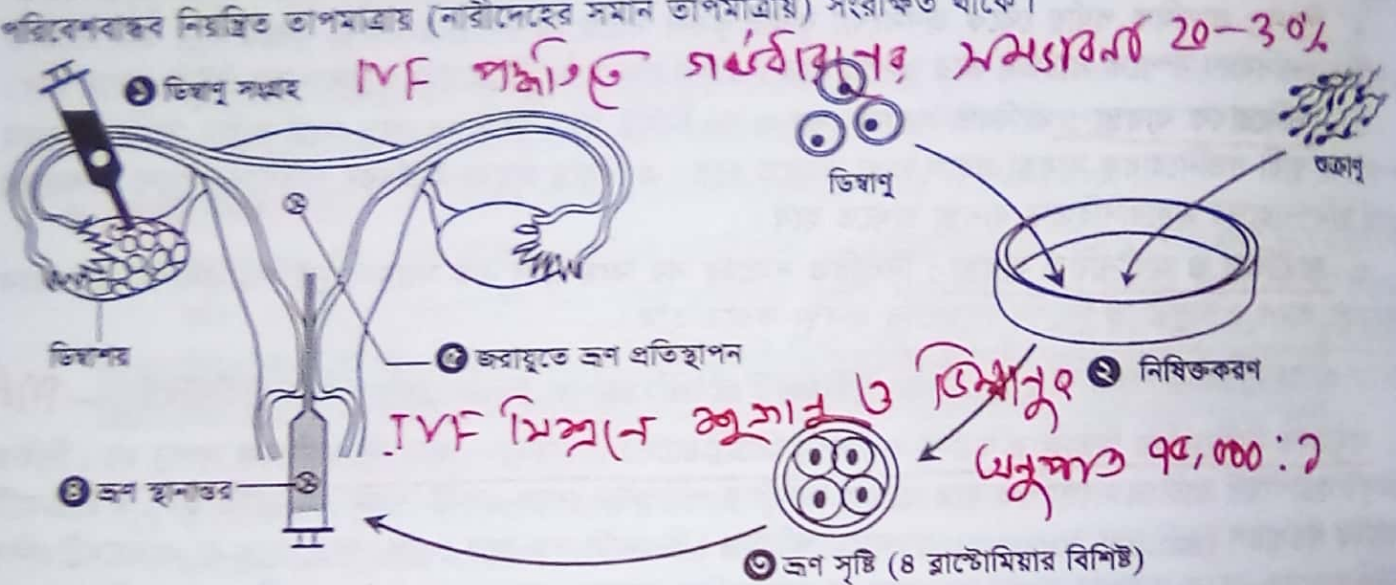 পরিবেশবান্ধব নিয়ন্ত্রিত তাপমাত্রায় (নারীদেহের সমান তাপমাত্রায়) সংরক্ষিত থাকে।
IVF পদ্ধতিতে গর্ভধারণের সম্ভাবনা 20-30%
১ ডিম্বাণু সংগ্রহ
ডিম্বাণু
শুক্রাণু
ডিম্বাশয়
৫ জরায়ুতে ভ্রূণ প্রতিস্থাপন
২ নিষিক্তকরণ
IVF মিশ্রনে শুক্রানু ও ডিম্বানুর
অনুপাত ৭৫,০০০:১
৪ ভ্রূণ স্থানান্তর
৩ ভ্রূণ সৃষ্টি (৪ ব্লাস্টোমিয়ার বিশিষ্ট)